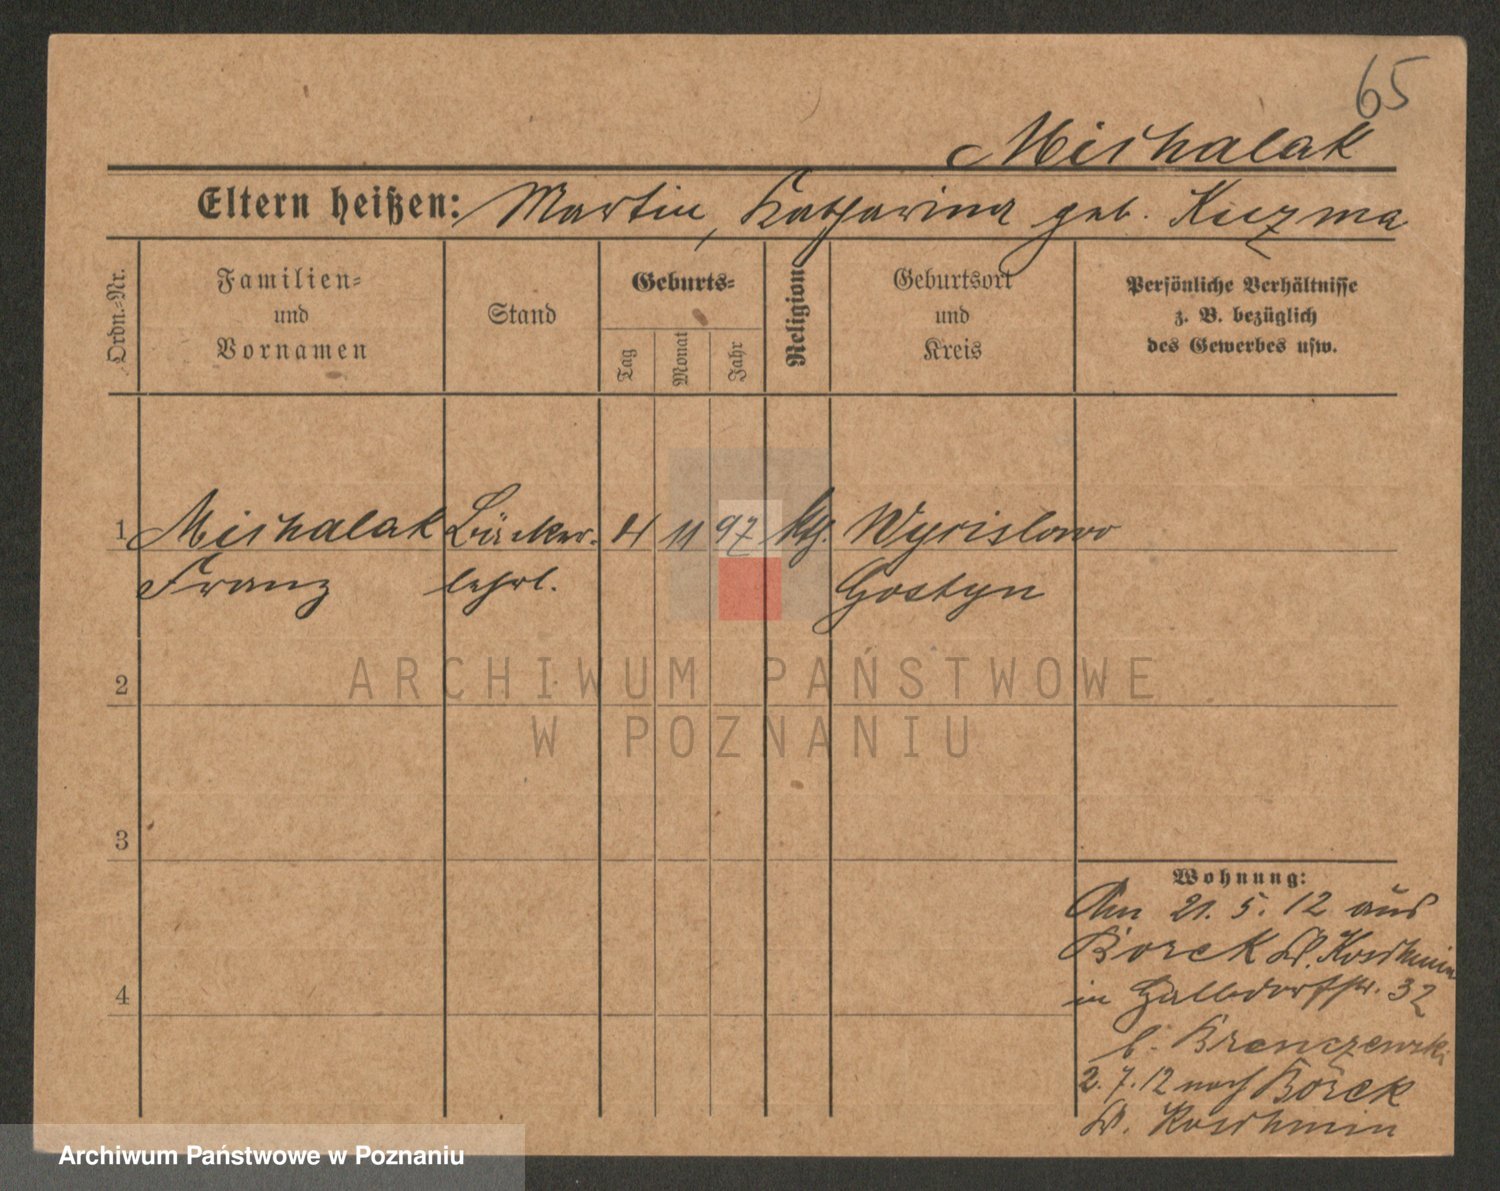 65
Michalak
Eltern heißen: Martin, Katharina geb. Kuczma
Ordn.-Nr.
Familien-
und
Vornamen
Stand
Geburts-
Tag
Monat
Jahr
Religion
Geburtsort
und
Kreis
Persönliche Verhältnisse
z. B. bezüglich
des Gewerbes usw.
1 Michalak Bäcker- 4 11 97 kth. Wycislowo
Franz lehrl. Gostyn
2
ARCHIWUM PAŃSTWOWE
W POZNANIU
3
Wohnung:
Am 21. 5. 12 aus
Borek Kr. Koschmin
4
in Halbdorfstr. 32
b.
2. 7. 12 nach Borek
Kr. Koschmin
Archiwum Państwowe w Poznaniu